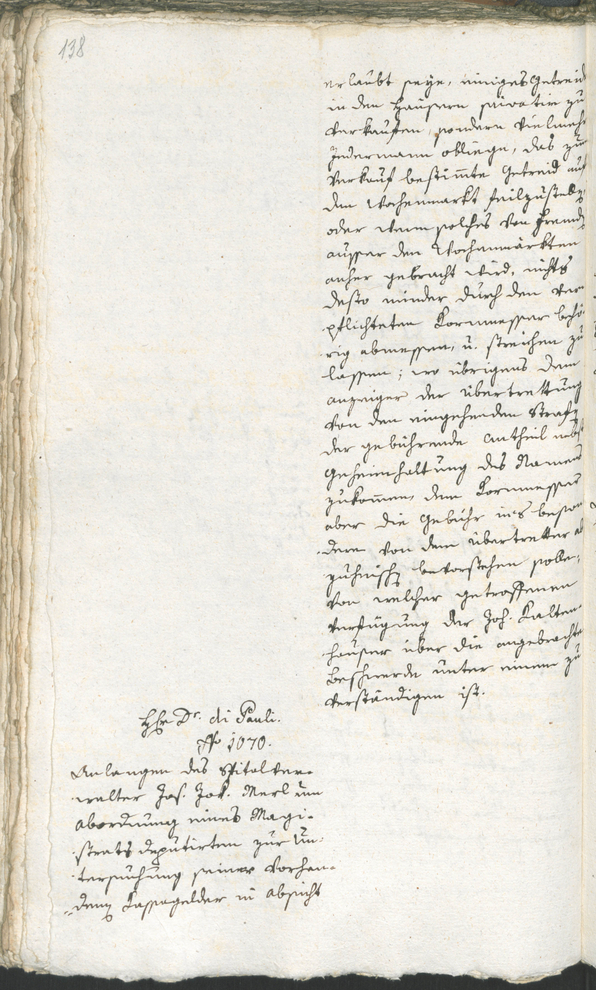 138
erlaubt seye, einiges Getreid
in den Häusern privatim zu
verkaufen, sondern vielmehr
Jedermann obliege, das zum
Verkauf bestimte Getreid auf
den Wochenmarkt feilzustellen,
oder wenn solches von Fremden
ausser den Wochenmärkten
anher gebracht wird, nichts
desto minder durch den ver
pflichteten Kornmesser behö
rig abmessen, u. streichen zu
lassen; wo übrigens dem
anzeiger der übertrettung
von den eingehenden Straf
der gebührende antheil nebst
Geheimhaltung des Namens
zukomen, dem Kornmesser
aber die Gebühr ins beson
dere von dem übertretter
bevorstehen solle,
von welcher getroffenen
Verfügung der Joh. Kalten
hauser über die angebrachte
Beschwerde unter einem zu
verständigen ist.
Hhr Dr. di Pauli.
No 1070.
Anlangen des Spitalver-
walter Jos. Jak. Merl um
abordnung eines Magi-
strats deputirten zur Un-
tersuchung seiner vorhan-
denen Kassagelder in absicht